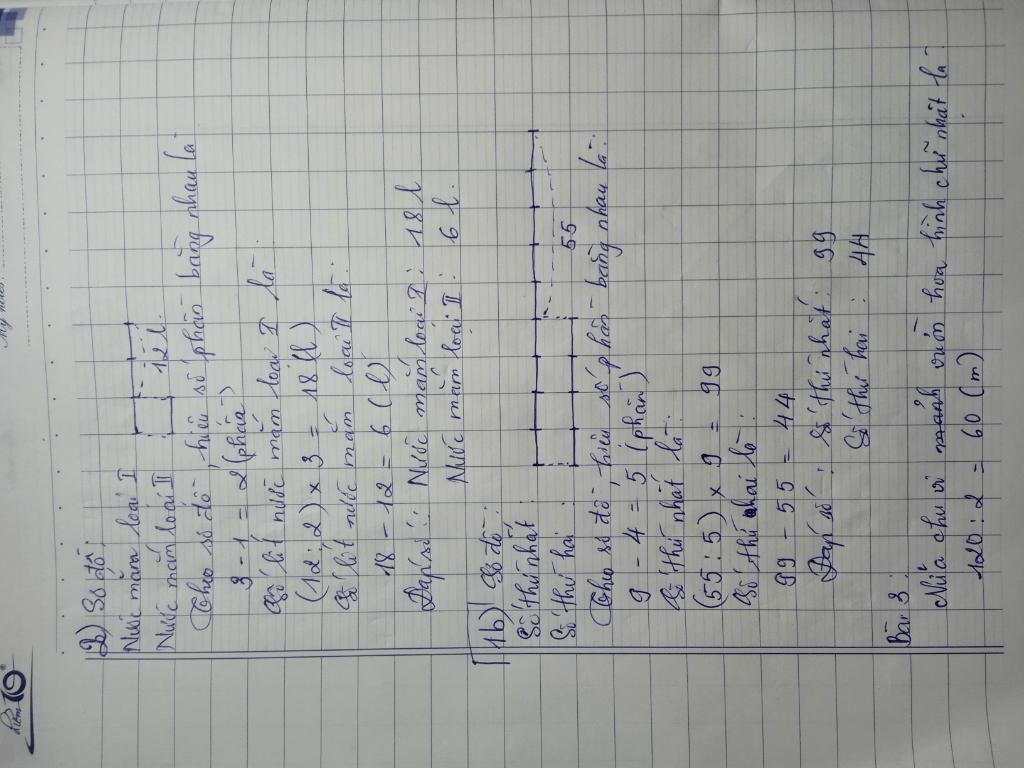 2) Sơ đồ:
Nước mắm loại I
Nước mắm loại II
12 l.
Theo sơ đồ, hiệu số phần bằng nhau là:
3 - 1 = 2 (phần)
Số lít nước mắm loại I là:
(12 : 2) x 3 = 18 (l)
Số lít nước mắm loại II là:
18 - 12 = 6 (l)
Đáp số: Nước mắm loại I: 18 l
Nước mắm loại II: 6 l.
1b) Sơ đồ:
Số thứ nhất:
Số thứ hai:
55
Theo sơ đồ, hiệu số phần bằng nhau là:
9 - 4 = 5 (phần)
Số thứ nhất là:
(55 : 5) x 9 = 99
Số thứ hai là:
99 - 55 = 44
Đáp số: Số thứ nhất: 99
Số thứ hai: 44
Bài 3:
Nửa chu vi mảnh vườn hoa hình chữ nhật là:
120 : 2 = 60 (m)